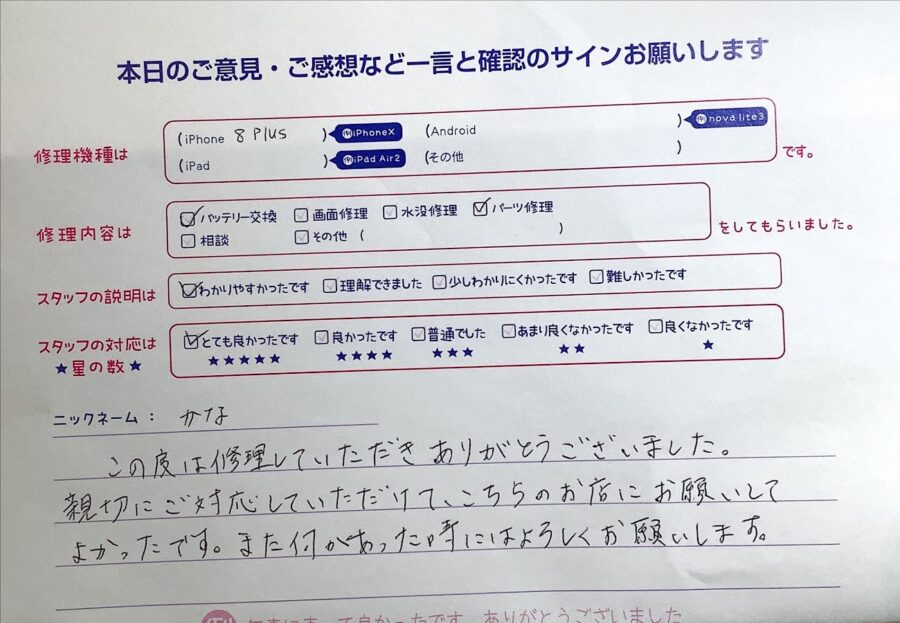 本日のご意見・ご感想など一言と確認のサインお願いします
修理機種は
(iPhone 8 Plus ) 例 iPhoneX (Android ) 例 nova lite3
(iPad ) 例 iPad Air2 (その他 ) です。
修理内容は
バッテリー交換 画面修理 水没修理 パーツ修理
相談 その他 ( )
をしてもらいました。
スタッフの説明は
わかりやすかったです 理解できました 少しわかりにくかったです 難しかったです
スタッフの対応は
★星の数★
とても良かったです 良かったです 普通でした あまり良くなかったです 良くなかったです
★★★★★ ★★★★ ★★★ ★★ ★
ニックネーム: かな
この度は修理していただきありがとうございました。
親切にご対応していただけて、こちらのお店にお願いして
よかったです。また何があった時にはよろしくお願いします。
て良かったです ありがとうございました